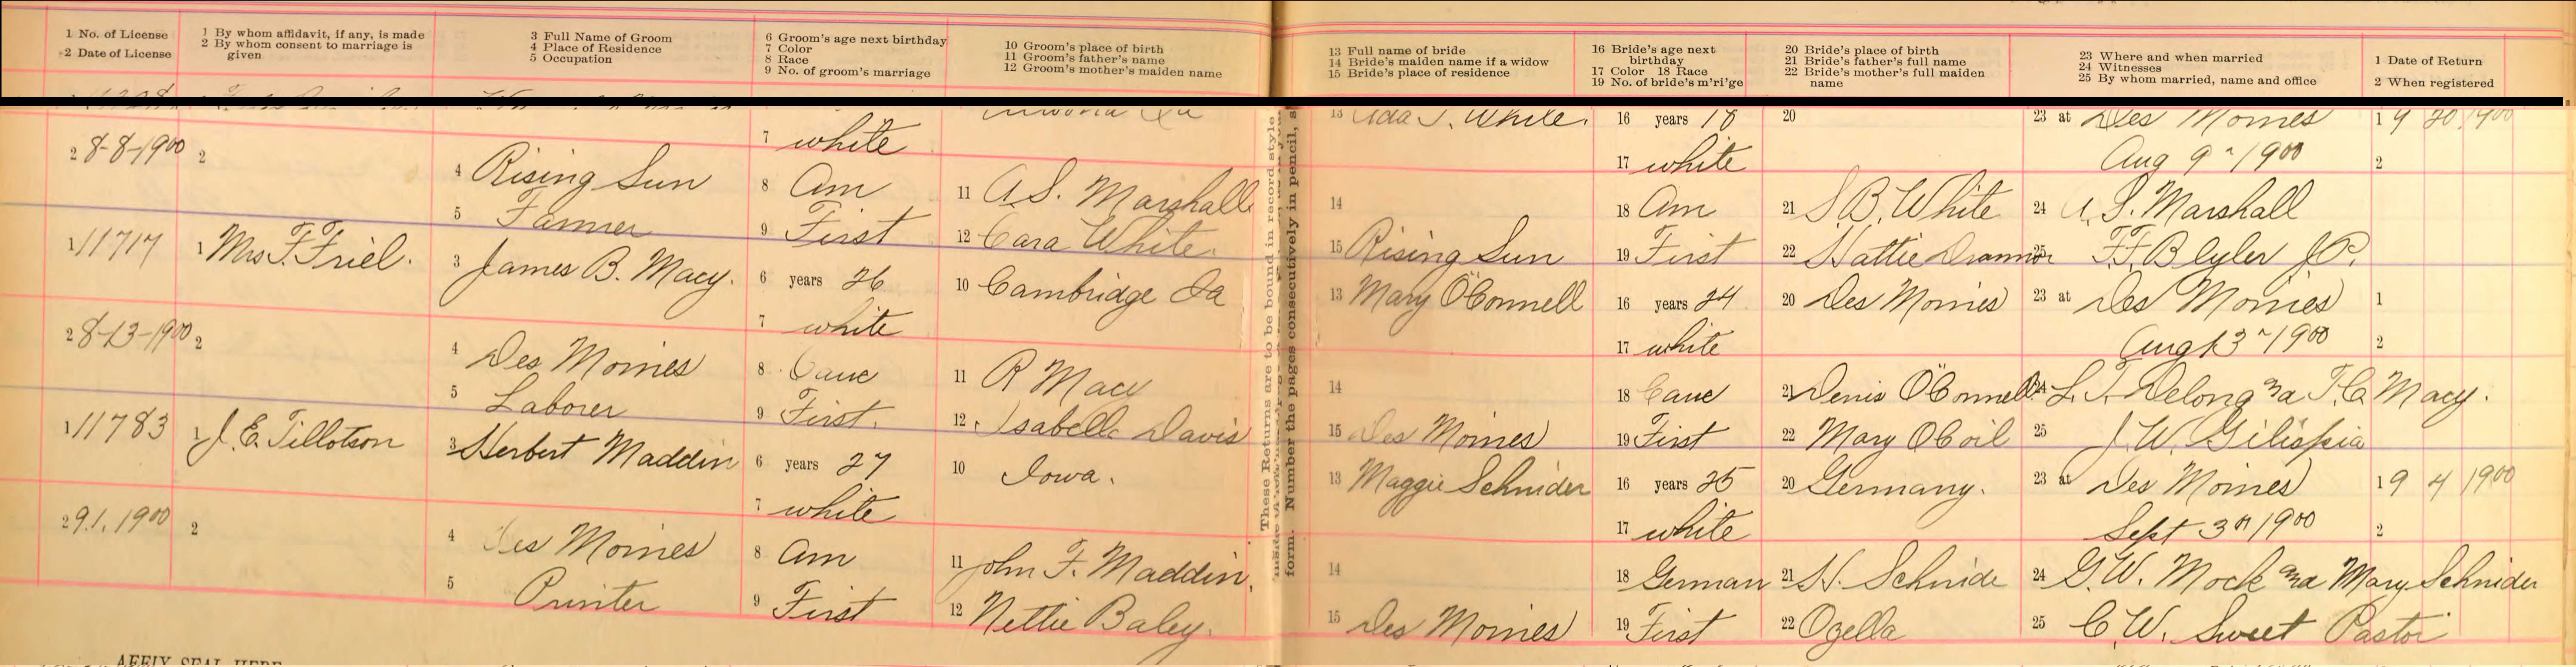 1 No. of License
2 Date of License
1 By whom affidavit, if any, is made
2 By whom consent to marriage is
given
3 Full Name of Groom
4 Place of Residence
5 Occupation
6 Groom's age next birthday
7 Color
8 Race
9 No. of groom's marriage
10 Groom's place of birth
11 Groom's father's name
12 Groom's mother's maiden name
13 Full name of bride
14 Bride's maiden name if a widow
15 Bride's place of residence
16 Bride's age next
birthday
17 Color 18 Race
19 No. of bride's m'ri'ge
20 Bride's place of birth
21 Bride's father's full name
22 Bride's mother's full maiden
name
23 Where and when married
24 Witnesses
25 By whom married, name and office
1 Date of Return
2 When registered
2 8-8-1900
2
4 Rising Sun
5 Farmer
7 white
8 Am
9 First
11 A.S. Marshall
12 Cara White
13 Ada J. White.
14
15 Rising Sun
16 years 18
17 white
18 Am
19 First
20
21 S B. White
22 Hattie
23 at Des Moines
Aug 9" 1900
24 A. S. Marshall
25 F.F. Blyler J.P.
1 9 20 1900
2
1 11717
2 8-13-1900
1 Mrs F. Friel.
2
3 James B. Macy.
4 Des Moines
5 Laborer
6 years 26
7 white
8 Cauc
9 First.
10 Cambridge Ia
11 R Macy
12 Isabelle Davis
13 Mary O'Connell
14
15 Des Moines
16 years 24
17 white
18 Cauc
19 First
20 Des Moines
21 Denis O'Connell
22 Mary OCoil
23 at Des Moines
Aug 13" 1900
24 L. T. Delong and T.C. Macy.
25 J. W. Gilispia
1
2
1 11783
2 9.1.1900
1 J. E. Tillotson
2
3 Herbert Maddin
4 Des Moines
5 Printer
6 years 27
7 white
8 Am
9 First
10 Iowa.
11 John F. Maddin.
12 Nettie Baley.
13 Maggie Schnider
14
15 Des Moines
16 years 25
17 white
18 German
19 First
20 Germany.
21 H. Schnide
22 Ogella
23 at Des Moines
Sept 3" 1900
24 G. W. Mock and Mary Schnider
25 C. W. Sweet Pastor
1 9 4 1900
2
These Returns are to be bound in record style
form. Number the pages consecutively in pencil, s
AFFIX SEAL HERE